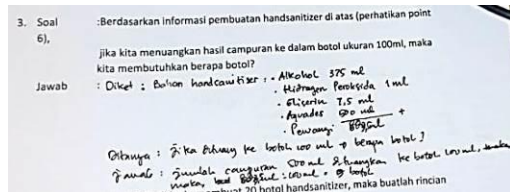 3. Soal :Berdasarkan informasi pembuatan handsanitizer di atas (perhatikan point
6),
jika kita menuangkan hasil campuran ke dalam botol ukuran 100ml, maka
kita membutuhkan berapa botol?
Jawab : Diket : Bahan handsanitizer : - Alkohol 375 ml
- Hidrogen Peroksida 1 ml
- Gliserin 7,5 ml
- Aquades 500 ml +
- Pewangi
Ditanya : Jika dituang ke botol 100 ml → berapa botol ?
Jawab : Jumlah campuran 500 ml dituangkan ke botol 100 ml, maka
maka, : 100 ml = 9 botol
20 botol handsanitizer, maka buatlah rincian